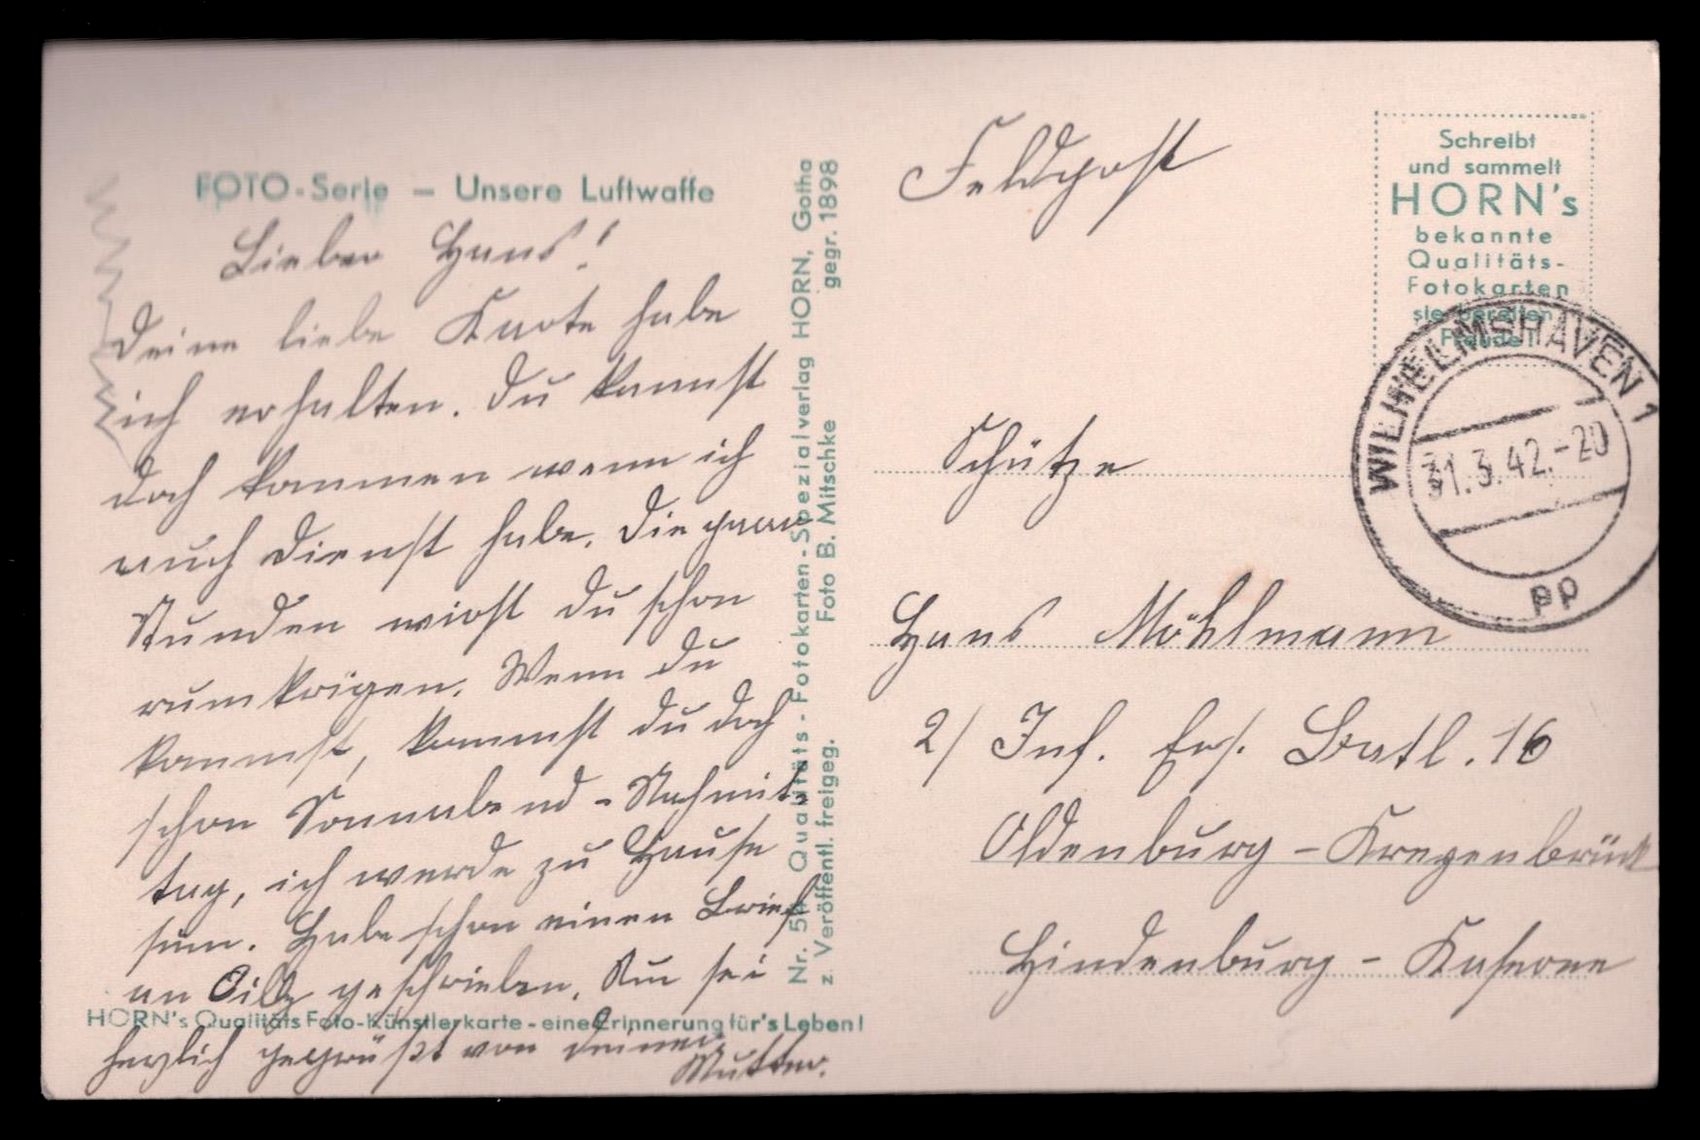 FOTO-Serie – Unsere Luftwaffe
Lieber Hans!
Deine liebe Karte habe
ich erhalten. Du kannst
doch kommen wenn ich
auch Dienst habe. Die paar
Stunden wirst du schon
rumkrigen. Wenn du
kannst, kommst du doch
schon Sonnabend-Nachmit-
tag, ich werde zu Hause
sein. Habe schon einen Brief
an geschrieben. Nun sei
HORN's Qualitäts Foto-Künstlerkarte - eine Erinnerung für's Leben!
herzlich gegrüßt von deiner
Mutter.
Nr. Qualitäts-Fotokarten-Spezialverlag HORN, Gotha
z. Veröffentl. freigeg. Foto B. Mitschke gegr. 1898
Feldpost
Schreibt
und sammelt
HORN's
bekannte
Qualitäts-
Fotokarten
sie bereiten
Freude!
WILHELMSHAVEN 1
31.3.42.-20
pp
Schütze
Hans Möhlmann
2/ Inf. Ers. Batl. 16
Oldenburg-Kreyenbrück
Hindenburg-Kaserne